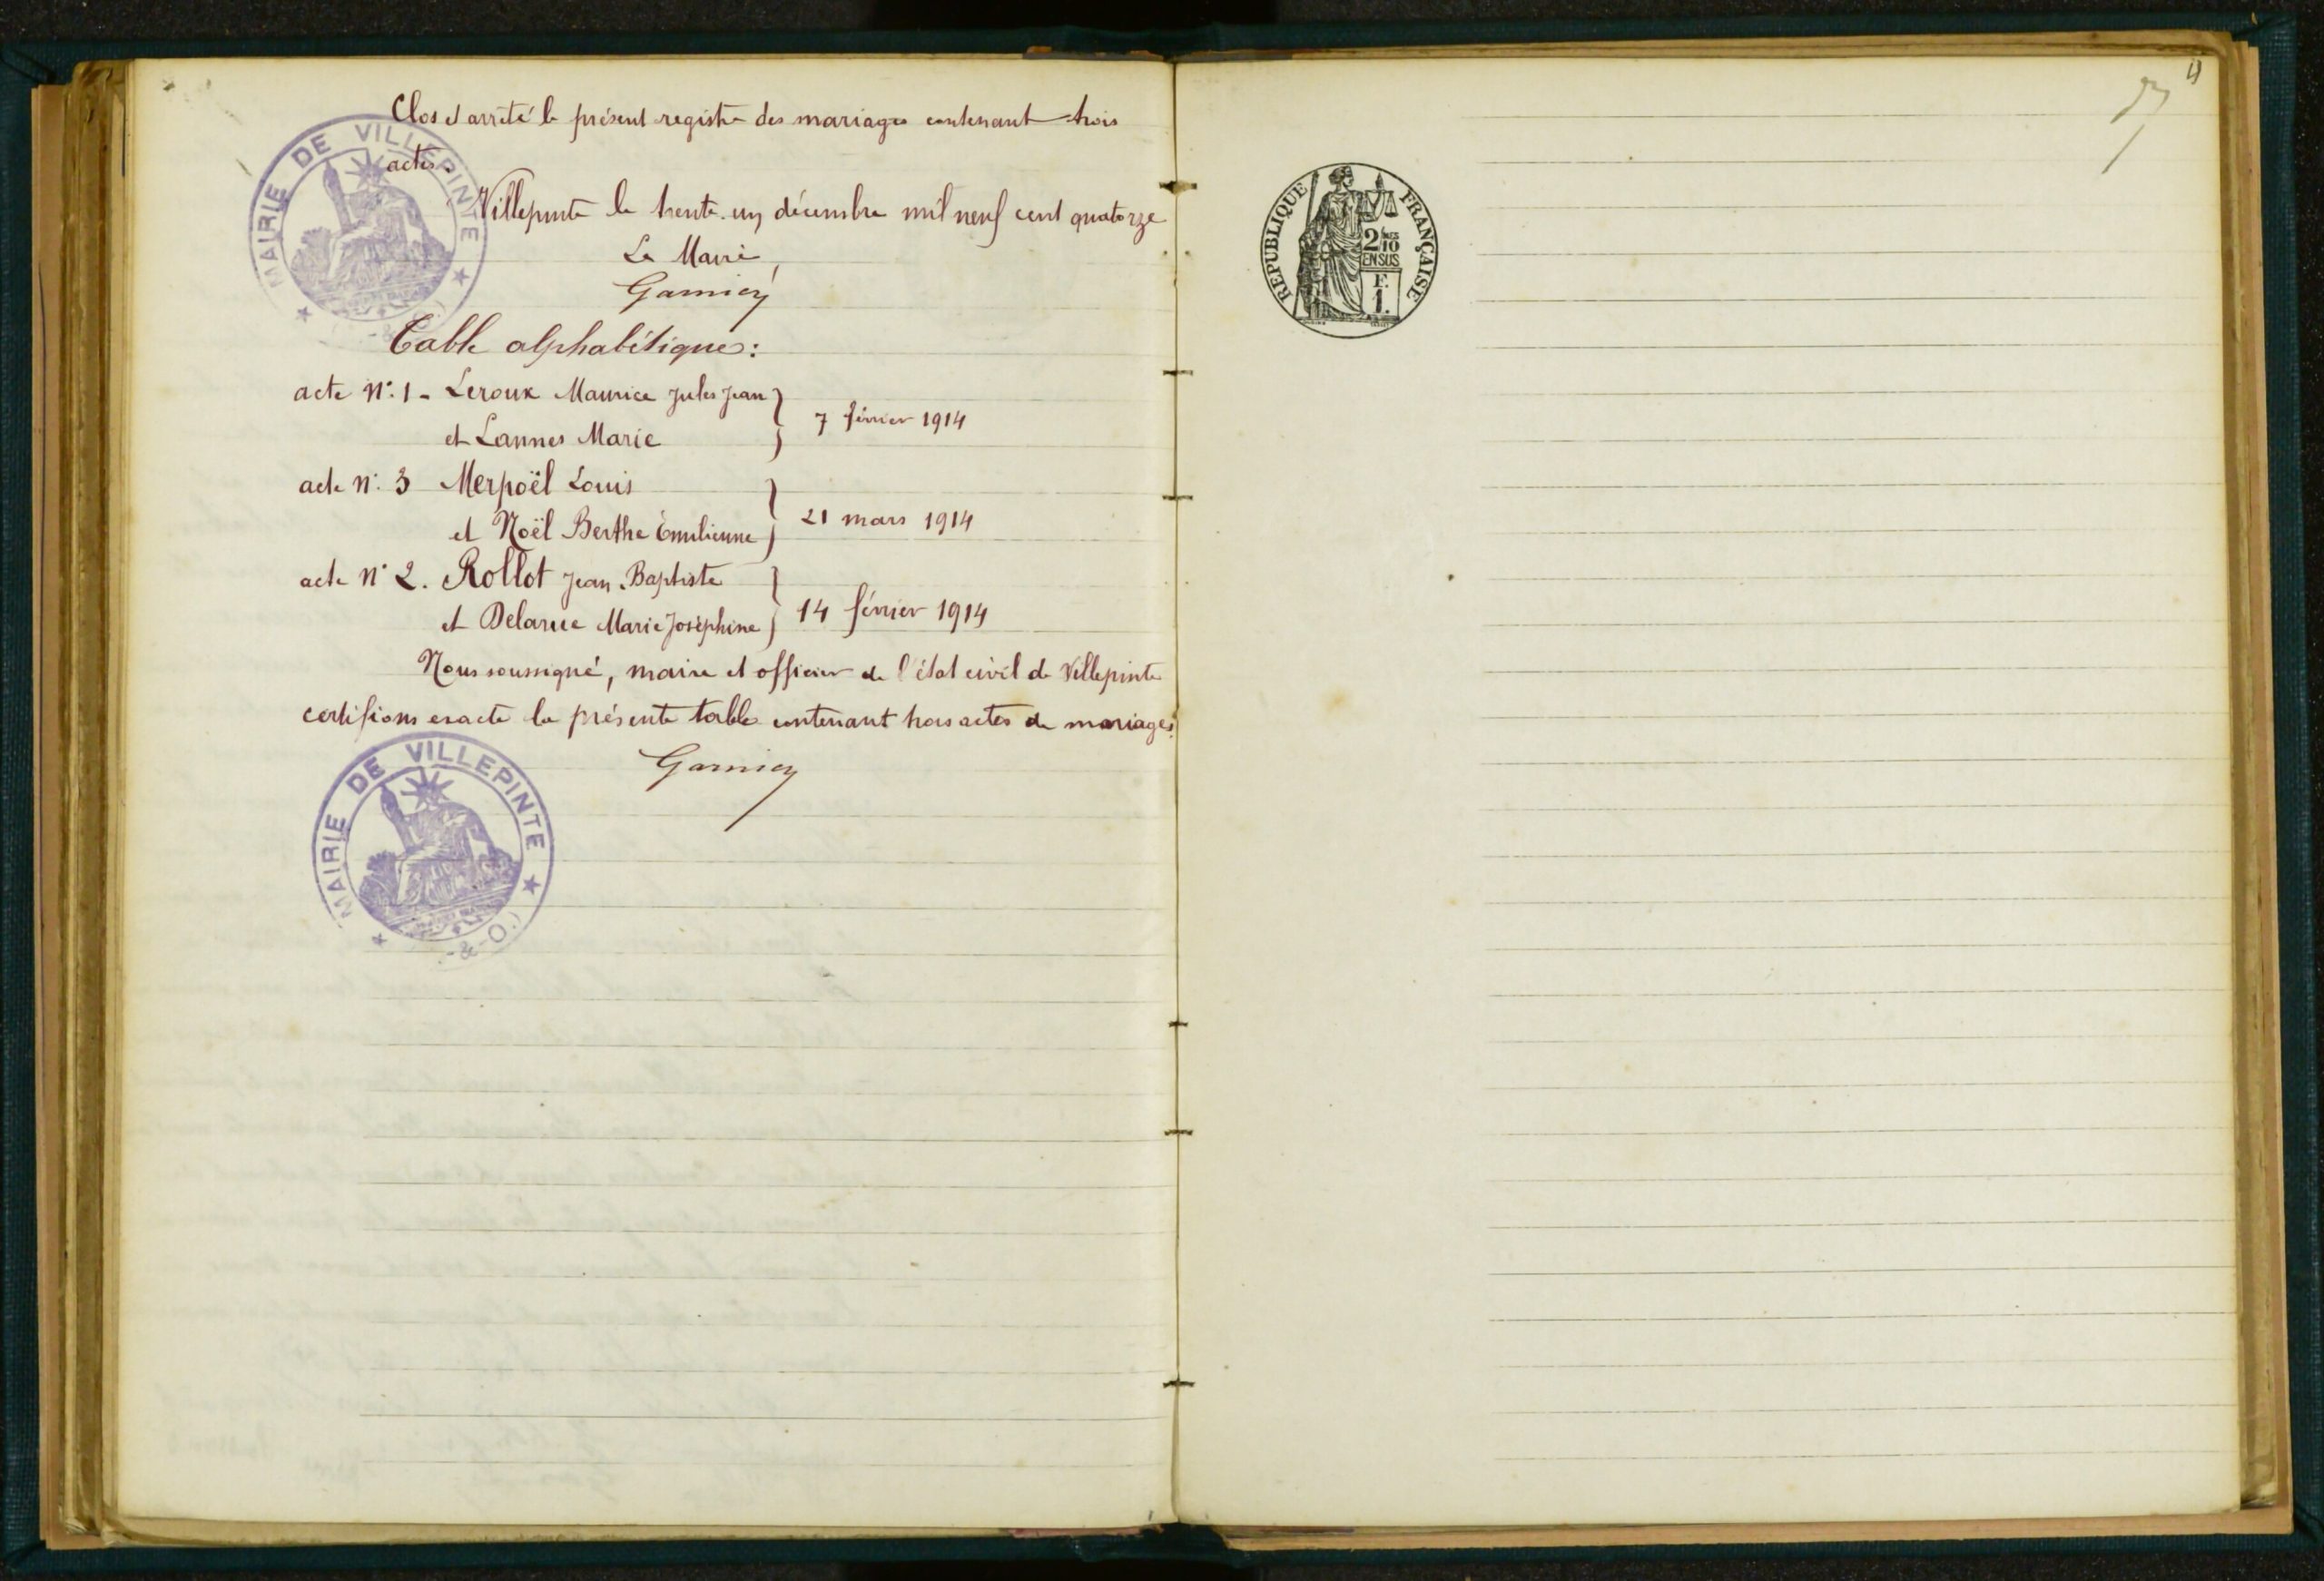 Clos et arrêté le présent registre des mariages contenant trois
actes.
Villepinte le trente-un décembre mil neuf cent quatorze
Le Maire,
Garnier
Table alphabétique:
acte N° 1 - Leroux Maurice Jules Jean
et Lannes Marie
7 février 1914
acte N° 3 Merpoël Louis
et Noël Berthe Émilienne
21 mars 1914
acte N° 2. Rollot Jean-Baptiste
et Delarue Marie Joséphine
14 février 1914
Nous soussigné, maire et officier de l'état civil de Villepinte
certifions exacte la présente table contenant trois actes de mariages.
Garnier
MAIRIE DE VILLEPINTE
MAIRIE DE VILLEPINTE
RÉPUBLIQUE FRANÇAISE
2/10
EN SUS
F.
1.